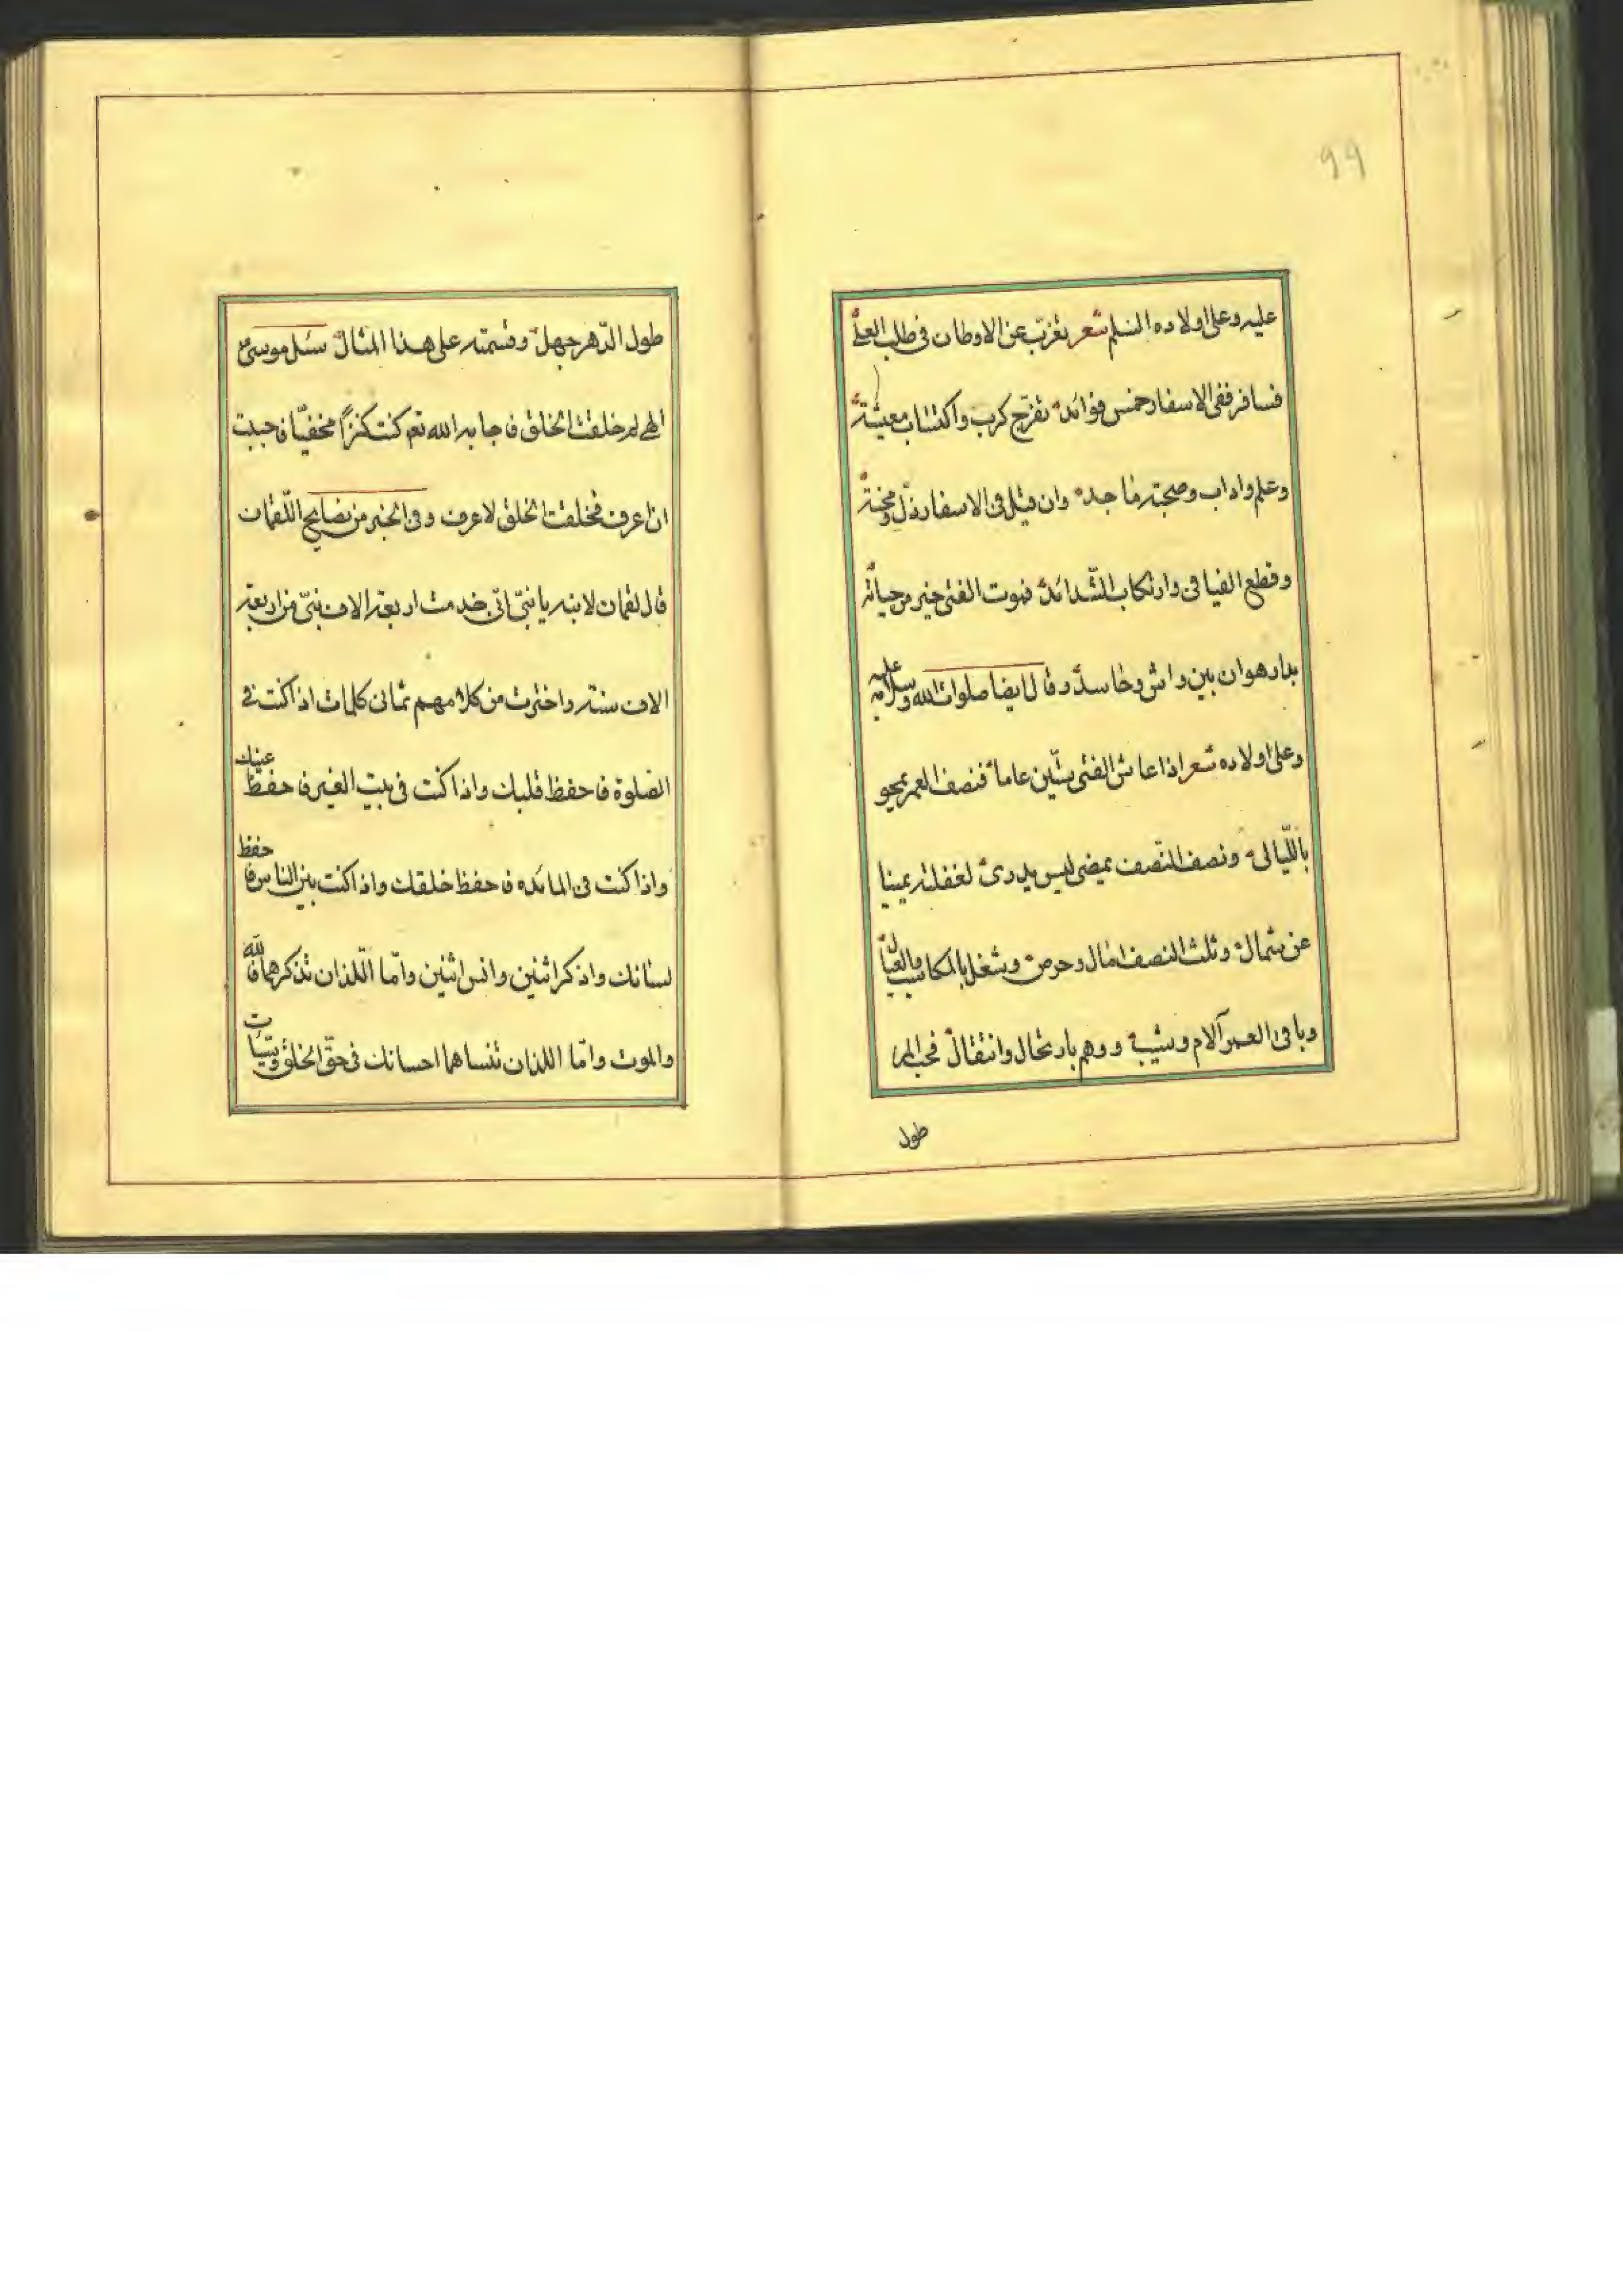 99
عليه وعلى اولاده السلم شعر تغرّب عن الاوطان فى طلب العلى
فسافر ففى الاسفار خمس فوائد تفرّج كرب واكتساب معيشة
وعلم واداب وصحبة ماجد وان قيل فى الاسفار ذلّ ومحنة
وقطع الفيافى وارتكاب الشّدائد فموت الفتى خير من حياته
بدار هوان بين واش وحاسد وقال ايضا صلوات الله وسلامه عليه
وعلى اولاده شعر اذا عاش الفتى ستّين عاما فنصف العمر يمحو
باللّيالى ونصف النّصف يمضى ليس يدرى لغفلته يمينا
عن شمال وثلث النصف امال وحرص وشغل بالمكاسب والعيال
وباقى العمر آلام وشيب وهم بارتحال وانتقال فحب المر
طول
طول الدّهر جهل وقسمته على هذا المثال سئل موسى ع
الهى لم خلقت الخلق فاجابه الله تع كنت كنزاً مخفيّا فاحببت
ان اعرف فخلقت الخلق لاعرف وفى الخبر من نصايح اللّقمان
قال لقمان لابنه يا بنىّ انّى خدمت اربعة الاف نبىّ من اربعة
الاف سنة واخترت من كلامهم ثمانى كلمات اذا كنت فى
الصلوة فاحفظ قلبك واذا كنت فى بيت الغير فاحفظ عينك
واذا كنت فى المائده فاحفظ خلقك واذا كنت بين الناس فاحفظ
لسانك واذكر اثنين وانس اثنين وامّا اللّذان تذكرهما فالله
والموت وامّا اللذان تنساهما احسانك فى حقّ الخلق وسيّات